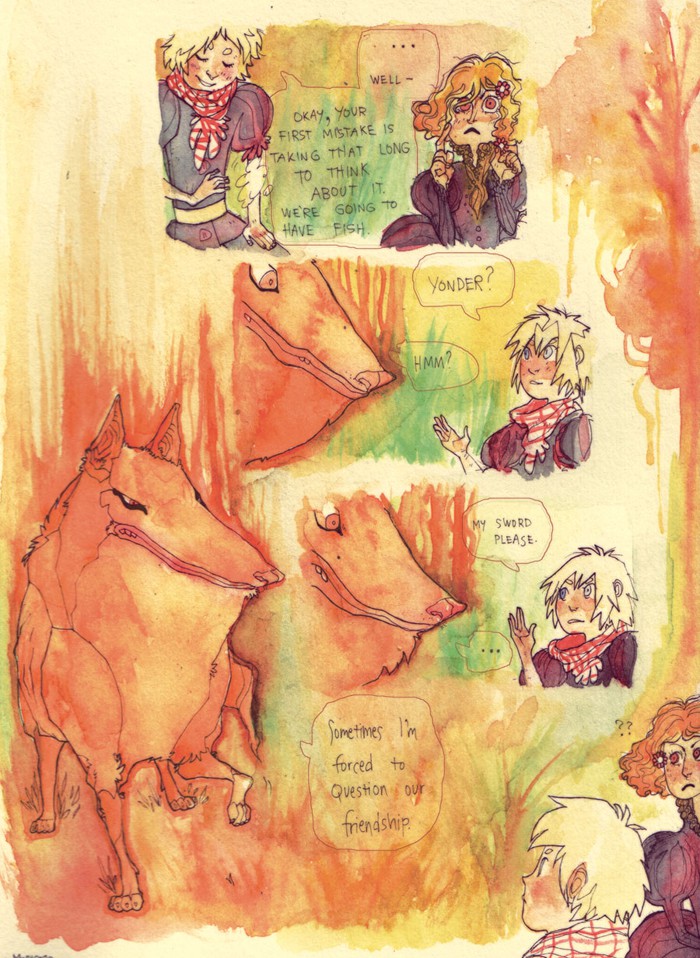 ...
WELL-
OKAY, YOUR
FIRST MISTAKE IS
TAKING THAT LONG
TO THINK
ABOUT IT.
WE'RE GOING TO
HAVE FISH.
YONDER?
HMM?
MY SWORD
PLEASE.
...
Sometimes I'm
forced to
Question our
friendship.
??